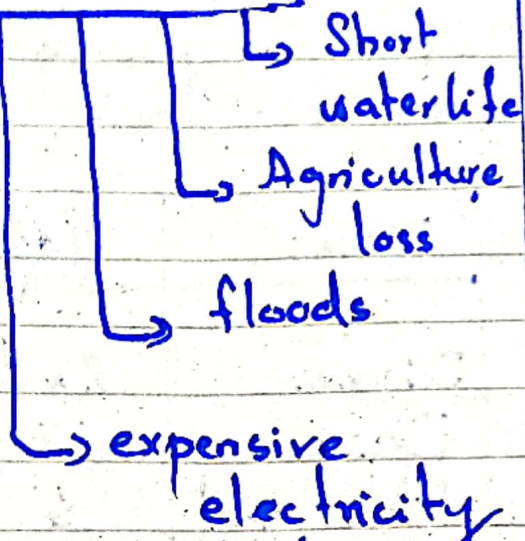 Short
waterlife
Agriculture
loss
floods
expensive
electricity